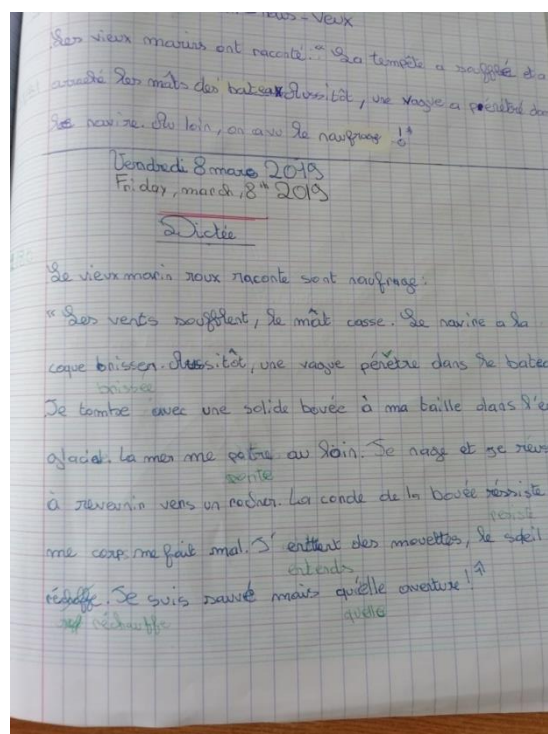 - Veux
Les vieux marins ont raconté : " La tempête a soufflé et a
arraché les mâts des bateaux Aussitôt, une vague a pénétré dans
le navire. Au loin, on a vu le naufrage ! "
Vendredi 8 mars 2019
Friday, march, 8th 2019
Dictée
Le vieux marin roux raconte sont naufrage :
" Les vents soufflent, le mât casse. Le navire a la
coque brissen. Aussitôt, une vague pénètre dans le batea
brisée
Je tombe avec une solide bouée à ma taille dans l'e
glacial. La mer me au loin. Je nage et je reus
porte
à reveunir vers un rocher. La conde de la bouée réssiste
résiste
me corps me fait mal. J' enttent des mouettes, le soleil
entends
réchoffe. Je suis sauvé mais qu'elle aventure ! "
réchauffe quelle